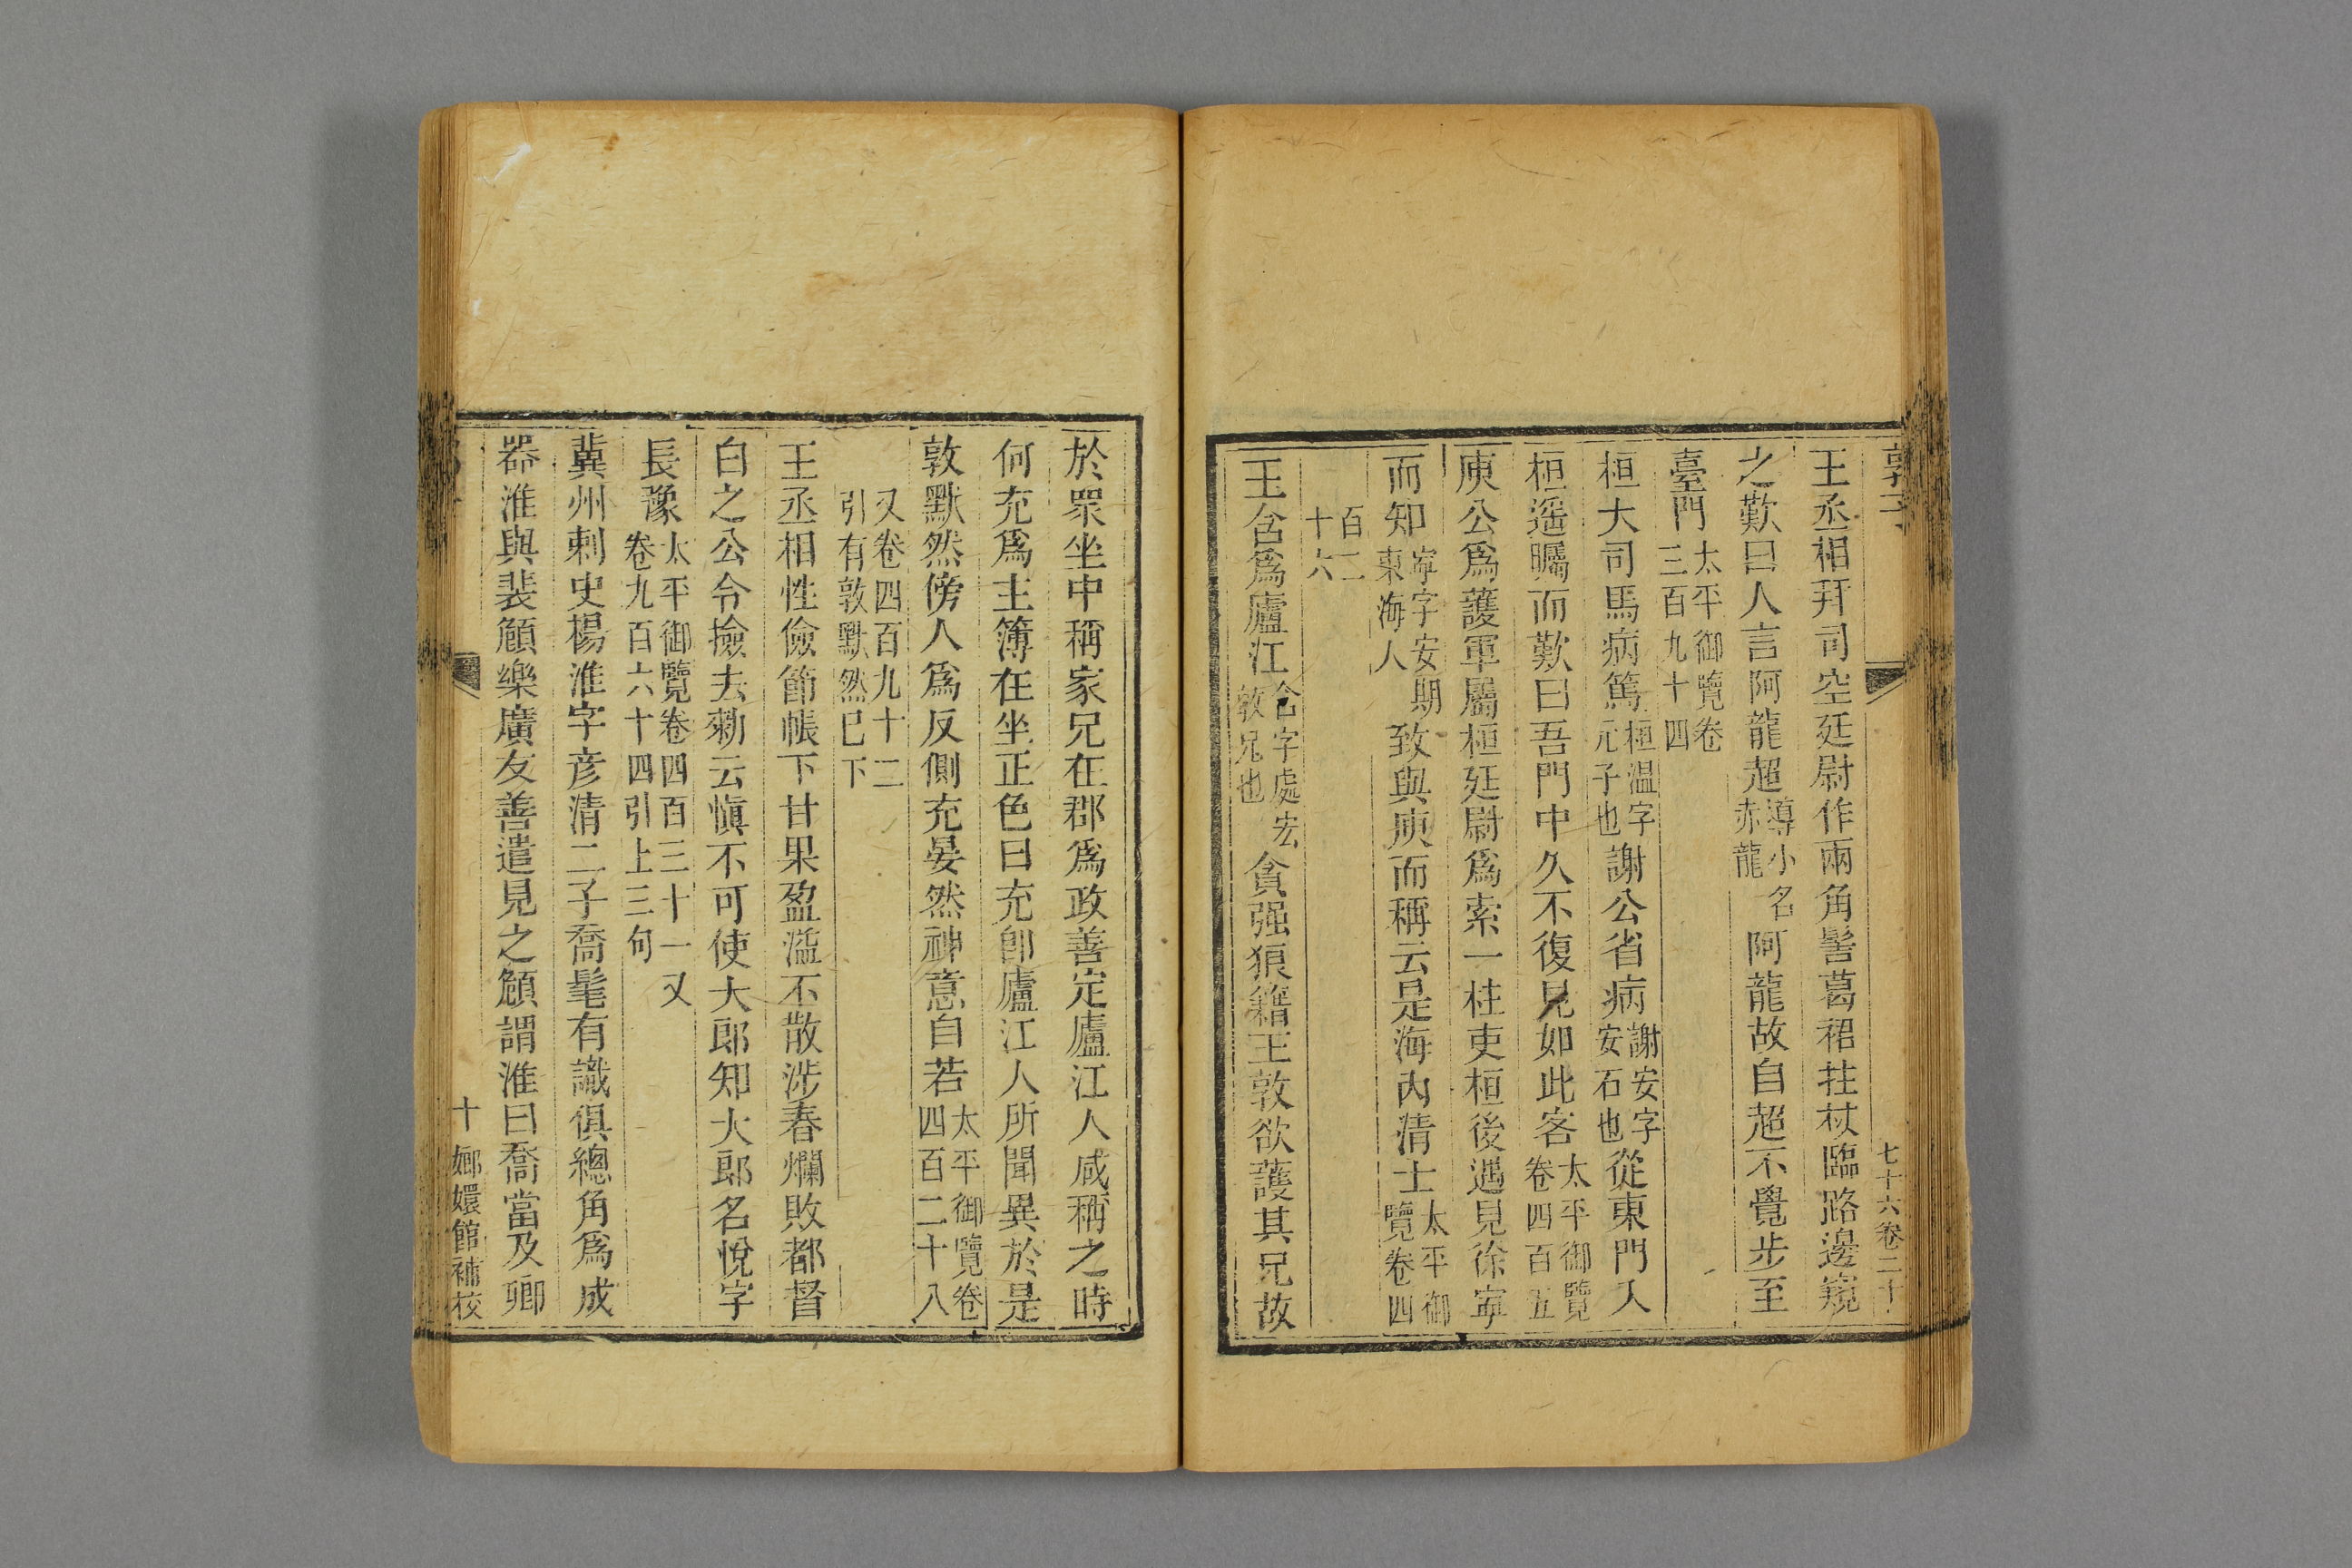 七十六卷二十
王丞相拜司空廷尉作兩角髻葛裙拄杖臨路邊窺
之歎曰人言阿龍超導小名赤龍阿龍故自超不覺步至
臺門太平御覽卷三百九十四
桓大司馬病篤桓温字元子也謝公省病謝安字安石也從東門入
桓遥矚而歎曰吾門中久不復見如此客太平御覽卷四百五
庾公爲護軍屬桓廷尉爲索一柱吏桓後遇見徐寧
而知寧字安期東海人致與庾而稱云是海內清士太平御覽卷四
百二十六
王含爲廬江含字處宏敦兄也貪强狼籍王敦欲護其兄故
於眾坐中稱家兄在郡爲政善定廬江人咸稱之時
何充爲主簿在坐正色曰充卽廬江人所聞異於是
敦默然傍人爲反側充晏然神意自若太平御覽卷四百二十八
又卷四百九十二引有敦默然已下
王丞相性儉節帳下甘果盈溢不散涉春爛敗都督
白之公令撿去勑云愼不可使大郎知大郎名悅字
長豫太平御覽卷四百三十一又卷九百六十四引上三句
冀州刺史楊淮字彥清二子喬髦有識俱總角爲成
器淮與裴頠樂廣友善遣見之頠謂淮曰喬當及卿
十 嫏嬛館補校